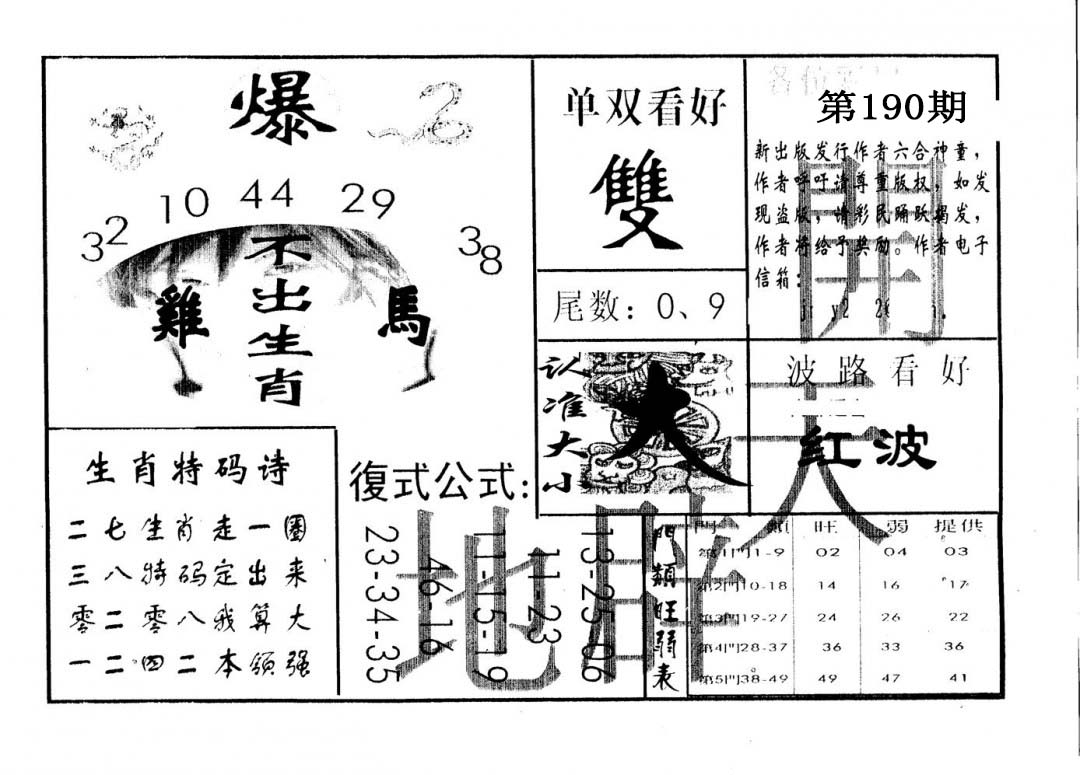 爆
10 44 29
32
38
不出生肖
雞
馬
单双看好
雙
尾数：0、9
第190期
新出版发行作者六合神童，
作者呼吁请尊重版权，如发
现盗版，请彩民踊跃揭发，
作者将给予奖励。作者电子
信箱：
认准大小
大
波路看好
紅波
生肖特码诗
二七生肖走一圈
三八特码定出来
零二零八我算大
一二四二本领强
復式公式：
23-34-35
46-16
11-15-19
11-23
13-25-06
門類旺弱表
門 類 旺 弱 提供
第1門1-9 02 04 03
第2門10-18 14 16 17
第3門19-27 24 26 22
第4門28-37 36 33 36
第5門38-49 49 47 41